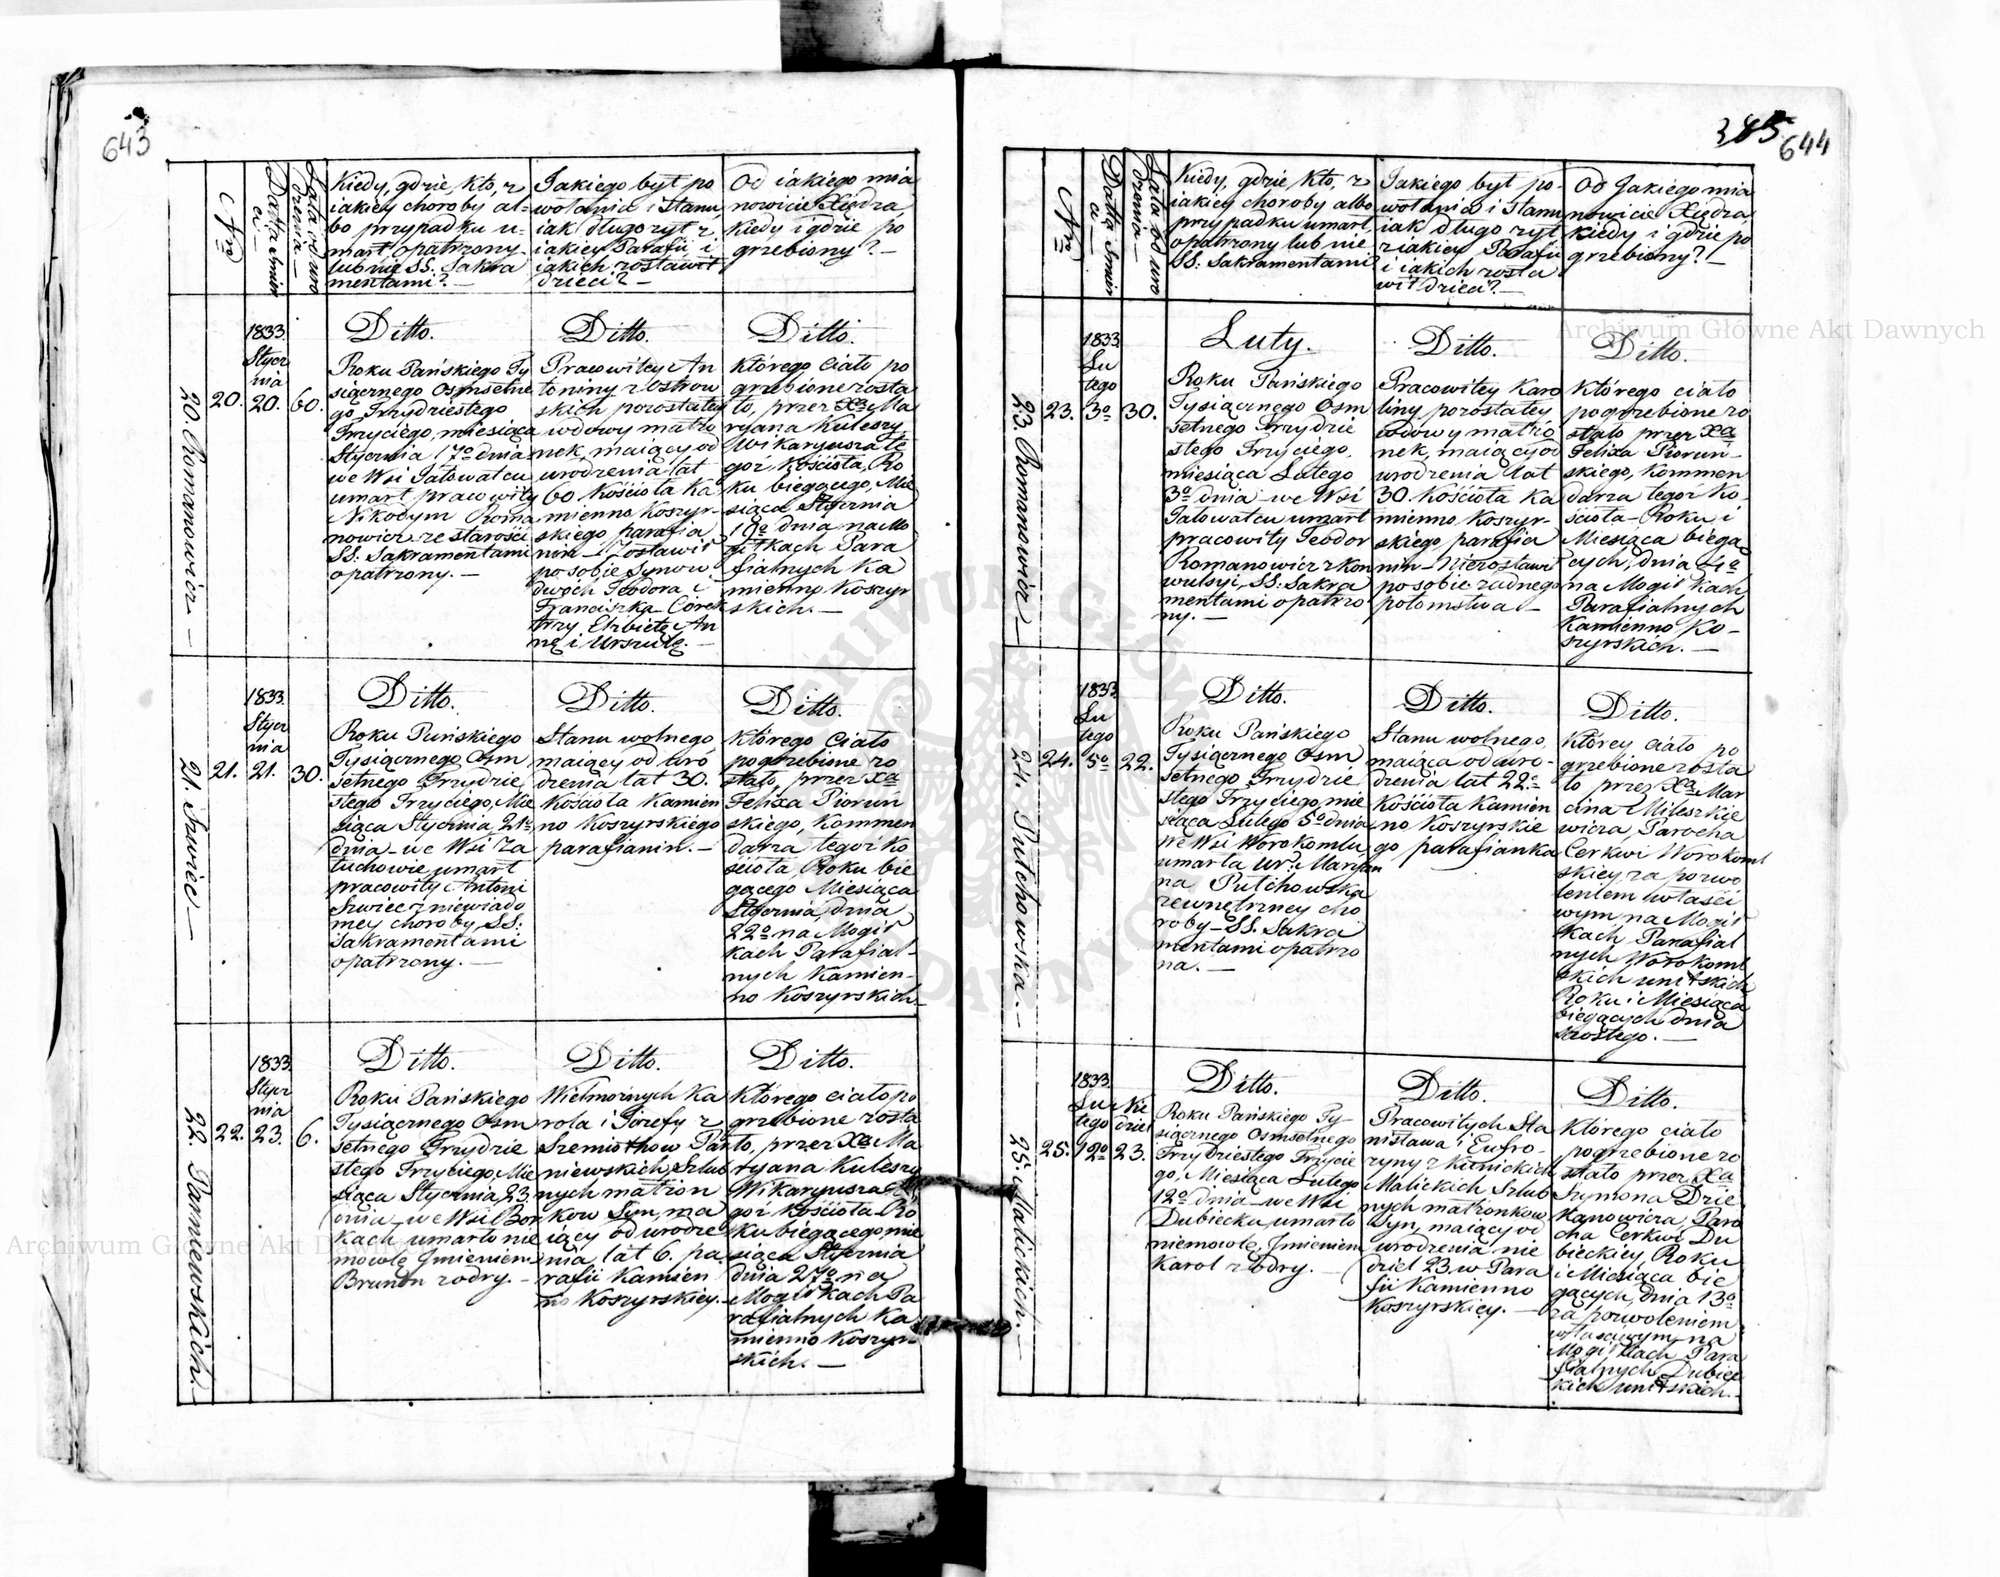 643
Nro
Data i Imie
a.—
Lata od uro
dzenia.—
Kiedy, gdzie, kto, z
iakiey choroby al-
bo przypadku u-
marł, opatrzony
lub nie SS. Sakra
mentami?.—
Jakiego był po
wołania i Stanu,
iak długo żył z
iakiey Parafii i
iakich zostawił
dzieci?—
Od iakiego mia
nowicie Xiędza
kiedy i gdzie po
grzebiony?.—
20. Romanowicz.—
20.
1833.
Stycz
nia
20.
60.
Ditto.
Roku Pańskiego Ty
siącznego Osmsetne
go Trzydziestego
Trzyciego, miesiąca
Stycznia 17o dnia
we Wsi Jatowatcu
umarł pracowity
Nikodym Roma
nowicz ze starości
SS. Sakramentami
opatrzony.—
Ditto.
Pracowitey An
toniny z Ostrow
skich pozostałey
wdowy małżo
nek, maiący od
urodzenia lat
60 Kościoła Ka
mienno Koszyr-
skiego parafia
nin — Zostawił
po sobie Synów
dwoch Teodora i
Franciszka Córek
trzy Elżbietę An
nę i Urszulę.—
Ditto.
Którego ciało po
grzebione zosta
ło, przez Xa Ma
ryana Kuleszy
Wikaryusza te
goż Kościoła, Ro
ku biegącego, Mie
siąca Stycznia
19o dnia na Mo
giłkach Para
fialnych Ka
mienno Koszyr
skich.—
21. Szwiec—
21.
1833.
Stycz
nia
21.
30.
Ditto.
Roku Pańskiego
Tysiącznego Osm
setnego Trzydzie
stego Trzyciego, Mie
siąca Stycznia 21o
dnia we Wsi Za
tuchowie umarł
pracowity Antoni
Szwiec z niewiado
mey choroby SS:
Sakramentami
opatrzony.—
Ditto.
Stanu wolnego
maiący od uro
dzenia lat 30.
Kościoła Kamien
no Koszyrskiego
parafianin.—
Ditto.
Którego ciało
pogrzebione zo
stało, przez Xa
Felixa Piorun
skiego, Kommen
darza tegoż Ko
ścioła, Roku bie
gącego Miesiąca
Stycznia, dnia
22o na Mogił
kach Parafial-
nych Kamien-
no Koszyrskich.
22. Parniewskich.—
22.
1833.
Stycz
nia
23.
6.
Ditto.
Roku Pańskiego
Tysiącznego Osm
setnego Trzydzie
stego Trzyciego, Mie
siąca Stycznia 23.
dnia we Wsi Bor
kach umarło nie
mowlę Jmieniem
Brunon z odry.—
Ditto.
Wielmożnych Ka
rola i Józefy z
Szemiothow Par
niewskich, Szlub
nych małżon
kow Syn, ma
iący od urodze
nia lat 6. pa
rafii Kamien
no Koszyrskiey.—
Ditto.
Którego ciało po
grzebione zosta
ło, przez Xa Ma
ryana Kuleszy
Wikaryusza te
goż Kościoła Ro
ku biegącego mie
siąca Stycznia
dnia 27o na
Mogiłkach Pa
rafialnych Ka
mienno Koszyr
skich.—
385
644
Nro
Data i Imie
a—
Lata od uro
dzenia—
Kiedy, gdzie, kto, z
iakiey choroby albo
przypadku umarł
opatrzony lub nie
SS. Sakramentami?
Jakiego był po-
wołania i Stanu
iak długo żył
z iakiey Parafii
i iakich zosta
wił dzieci?—
Od Jakiego mia
nowicie Xiędza
kiedy i gdzie po
grzebiony?—
23. Romanowicz—
23.
1833
Lu
tego
3o
30.
Luty.
Roku Pańskiego
Tysiącznego Osm
setnego Trzydzie
stego Trzyciego,
miesiąca Lutego
3o dnia we Wsi
Jatowatcu umarł
pracowity Teodor
Romanowicz z kon
wulsyi, SS: Sakra
mentami opatrzo
ny.—
Ditto.
Pracowitey Karo
liny pozostałey
wdowy małżo
nek, maiący od
urodzenia lat
30. Kościoła Ka
mienno Koszyr-
skiego parafia
nin — Niezostawił
po sobie żadnego
potomstwa—
Ditto.
Którego ciało
pogrzebione zo
stało przez Xa
Felixa Piorun-
skiego, Kommen
darza tegoż Ko-
ścioła — Roku i
Miesiąca biegą
cych, dnia 4o
na Mogiłkach
Parafialnych
Kamienno Ko-
szyrskich.—
24. Putchowska.—
24.
1833.
Lu
tego
5o
22.
Ditto.
Roku Pańskiego
Tysiącznego Osm
setnego Trzydzie
stego Trzyciego, mie
siąca Lutego 5o dnia
we Wsi Worokomlu
umarła Ur: Maryan
na Putchowska
zewnętrzney cho
roby — SS. Sakra
mentami opatrzo
na.—
Ditto.
Stanu wolnego,
maiąca od uro-
dzenia lat 22.
Kościoła Kamien
no Koszyrskie
go parafianka
Ditto.
Którey ciało po
grzebione zosta
ło przez Xa Mar
cina Mileszkie
wicza, Parocha
Cerkwi Worokoml
skiey za pozwo
leniem właści
wym na Mogił
kach Parafial
nych Worokoml
skich unitskich
Roku i Miesiąca
biegących dnia
szostego.—
25. Malickich.—
25.
1833.
Lu
tego
12o
Nie
dziel
23.
Ditto.
Roku Pańskiego Ty-
siącznego Osmsetnego
Trzydziestego Trzycie
go, Miesiąca Lutego
12o dnia we Wsi
Dubiecku, umarło
niemowlę, Jmieniem
Karol z odry.—
Ditto.
Pracowitych Sta
nisława i Eufro-
zyny z Kunickich
Malickich Szlub
nych małżonkow
Syn, maiący od
urodzenia nie
dziel 23. w Para
fii Kamienno
Koszyrskiey.—
Ditto.
Którego ciało
pogrzebione zo
stało przez Xa
Szymona Dzie
kanowicza, Paro
cha Cerkwi Du
bieckiey, Roku
i Miesiąca bie
gących, dnia 13o
za pozwoleniem
właściwym na
Mogiłkach Para
fialnych Dubiec
kich unitskich.—
Archiwum Główne Akt Dawnych
Archiwum Główne Akt Dawnych
ARCHIWUM GŁÓWNE AKT DAWNYCH